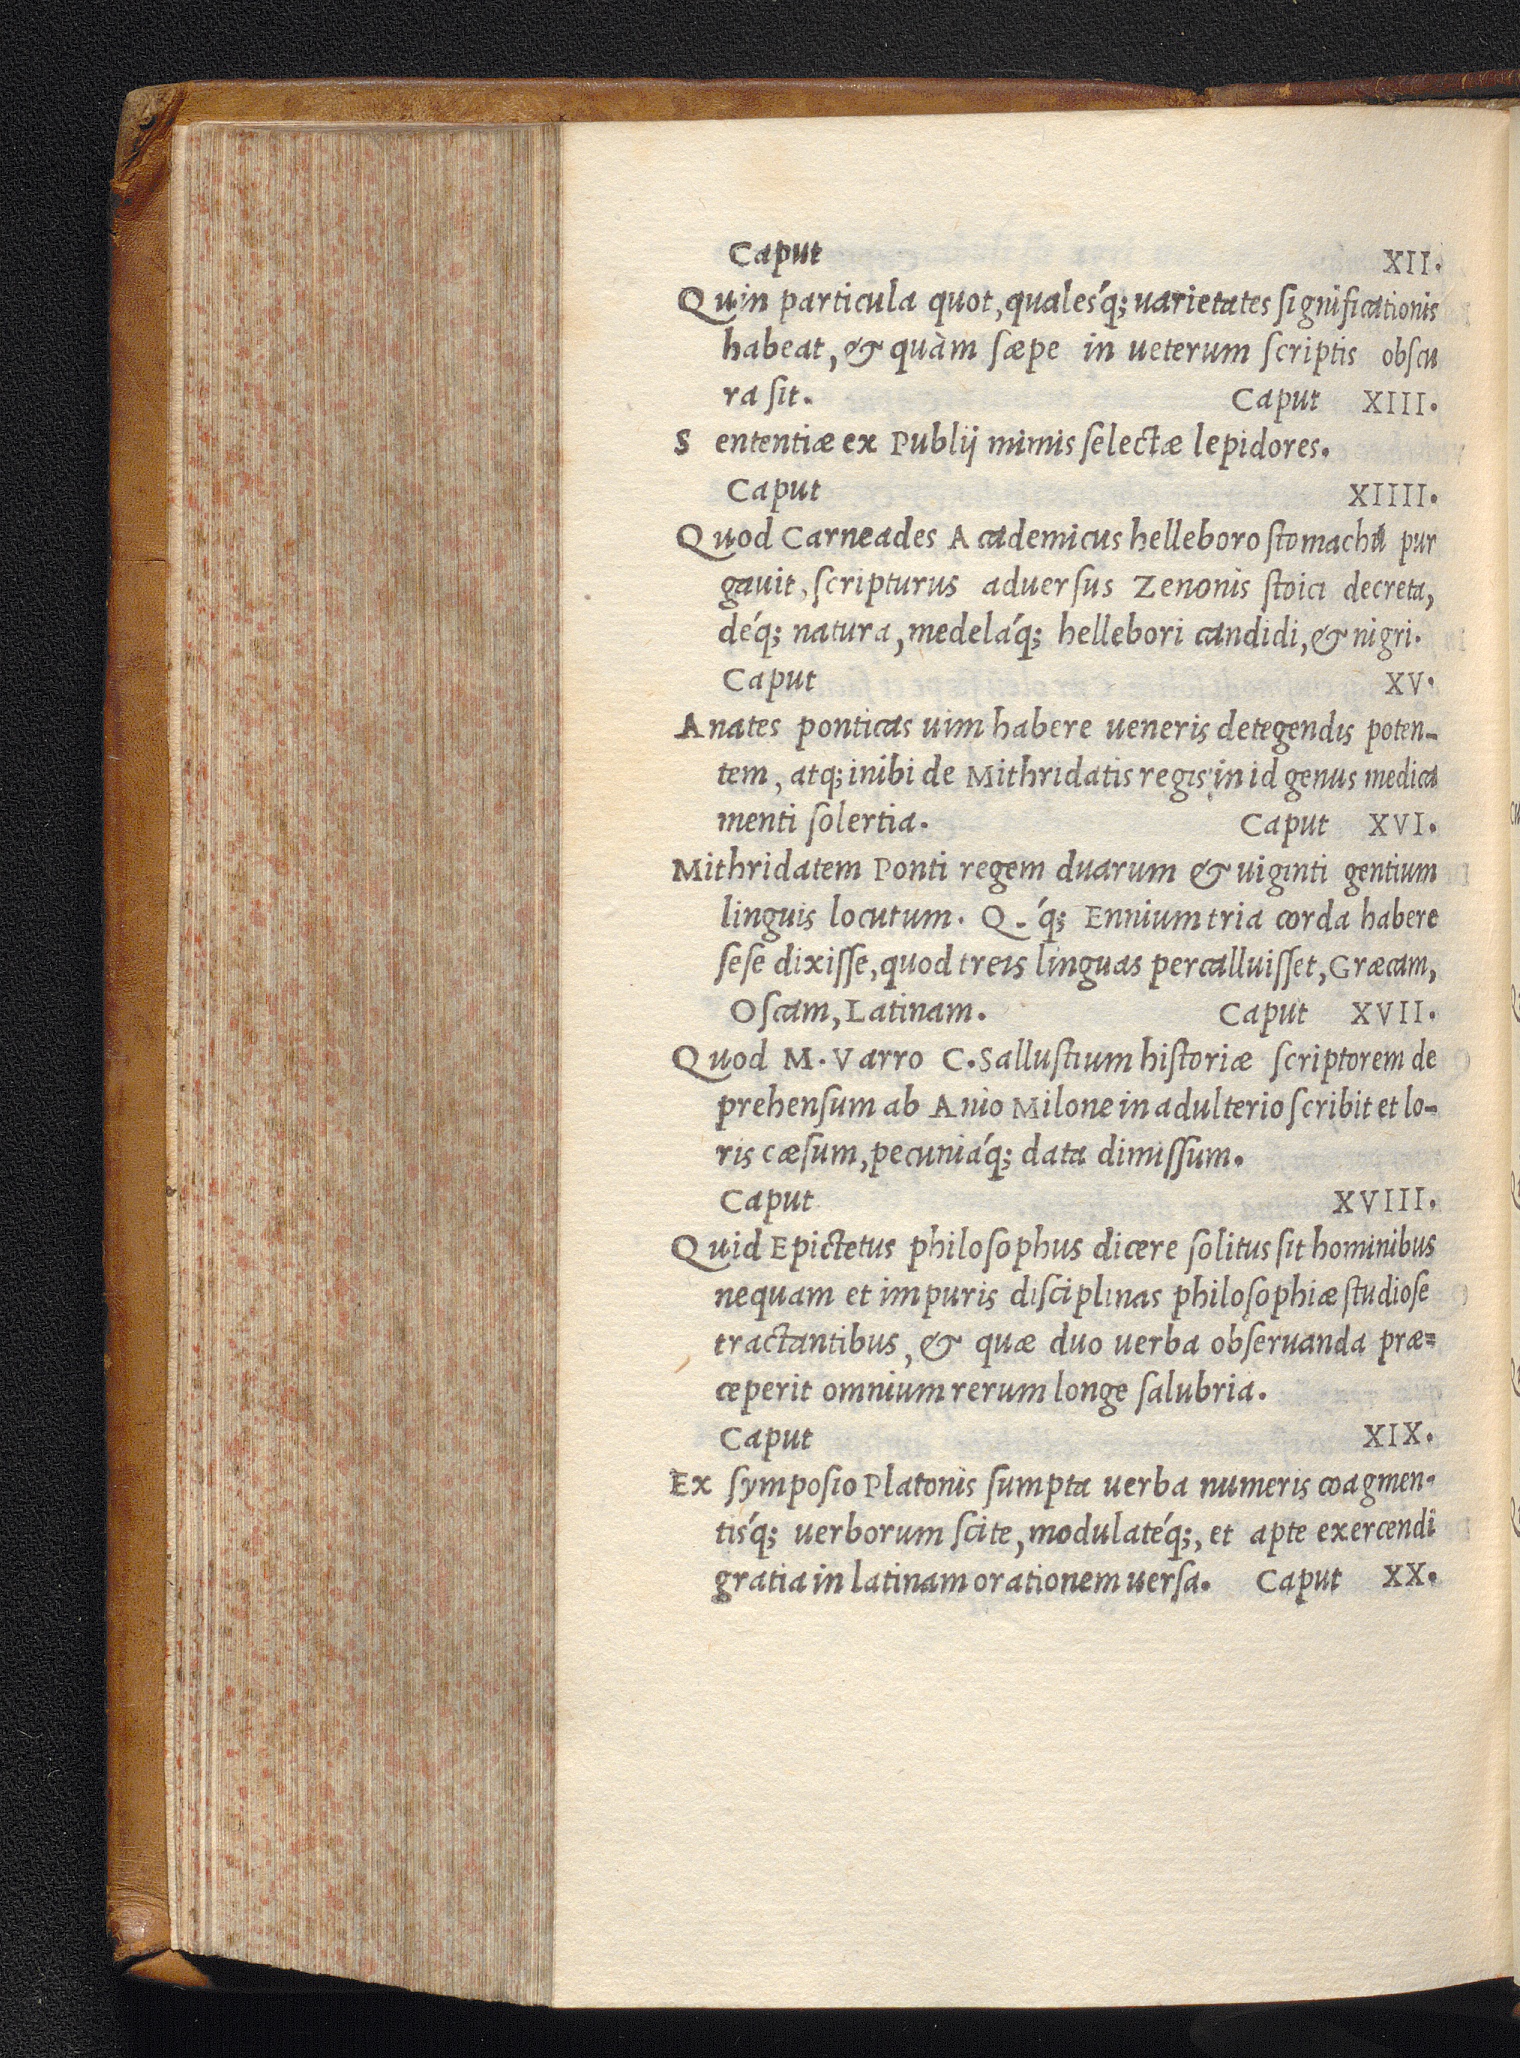 Caput XII.
Quin particula quot, qualesq́; uarietates ſignificationis
habeat, & quàm ſæpe in ueterum ſcriptis obſcu
ra ſit. Caput XIII.
Sententiæ ex Publij mimis ſelectæ lepidores.
Caput XIIII.
Quod Carneades Academicus helleboro ſtomachũ pur
gauit, ſcripturus aduerſus Zenonis ſtoici decreta,
deq́; natura, medelaq́; hellebori candidi, & nigri.
Caput XV.
Anates ponticas uim habere ueneris detegendis poten-
tem, atq; inibi de Mithridatis regis in id genus medica
menti ſolertia. Caput XVI.
Mithridatem Ponti regem duarum & uiginti gentium
linguis locutum. Q.q́; Ennium tria corda habere
ſeſe dixiſſe, quod treis linguas percalluiſſet, Græcam,
Oſcam, Latinam. Caput XVII.
Quod M. Varro C. Salluſtium hiſtoriæ ſcriptorem de
prehenſum ab Anio Milone in adulterio ſcribit et lo-
ris cæſum, pecuniaq́; data dimiſſum.
Caput XVIII.
Quid Epictetus philoſophus dicere ſolitus ſit hominibus
nequam et impuris diſciplinas philoſophiæ ſtudioſe
tractantibus, & quæ duo uerba obſeruanda præ=
ceperit omnium rerum longe ſalubria.
Caput XIX.
Ex ſympoſio Platonis ſumpta uerba numeris coagmen-
tisq́; uerborum ſcite, modulateq́;, et apte exercendi
gratia in latinam orationem uerſa. Caput XX.